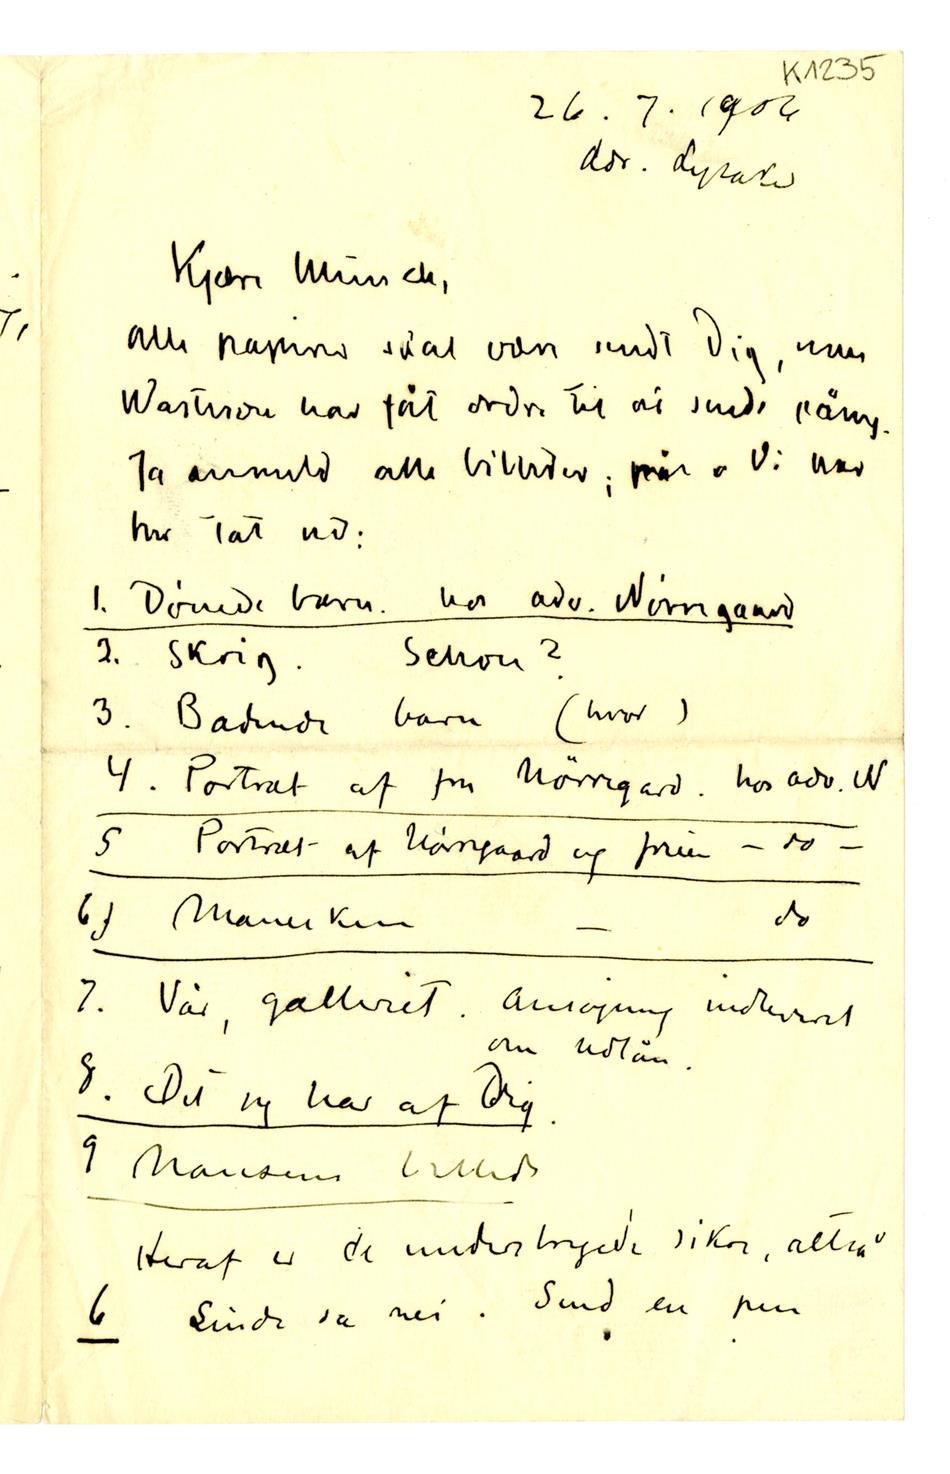 K1235
26. 7. 1906
Adr. Lysaker
Kjære Munch,
Alle papirer skal være sendt Dig, men
har fåt ordre til at sende
Ja anmeld alle billeder; Vi har
her tat ud:
1. Døende barn. hos adv. Nörregaard
2. Skrig. Schou?
3. Badende barn (hvor)
4. Portræt af fru Nörregard. hos adv. N
5 Portræt af Nörregaard og frue – do –
6) – do
7. Vår, galleriet. Ansøgning indleveret
om udlån.
8. Det jeg har af Dig.
9 Nansens billede
Heraf er de understregede sikre, altså
6 Linde sa nei. Send en pen